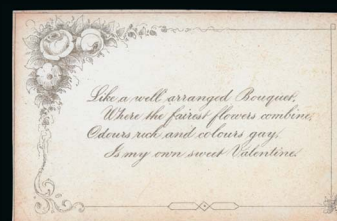 Like a well arranged Bouquet,
Where the fairest flowers combine,
Odours rich and colours gay,
Is my own sweet Valentine.